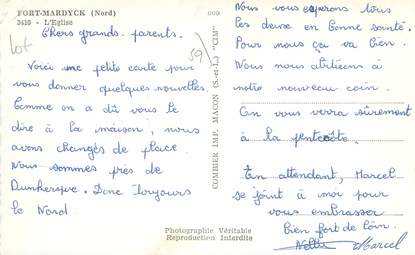 FORT-MARDYCK (Nord)
3410 - L'Eglise
Lot
59
Chers grands-parents.
Voici une petite carte pour
vous donner quelques nouvelles.
Comme on a dû vous le
dire à la maison, nous
avons changés de place.
Nous sommes près de
Dunkerque. Donc toujours
le Nord
COMBIER IMP. MACON (S.-et-L.) "CIM"
Nous vous espérons tous
les deux en bonne santé.
Pour nous ça va bien.
Nous nous abituons à
notre nouveau coin.
On vous verra sûrement
à la pentecôte.
En attendant, Marcel
se joint à moi pour
vous embrasser
bien fort de loin.
Nelly Marcel
Photographie Véritable
Reproduction Interdite